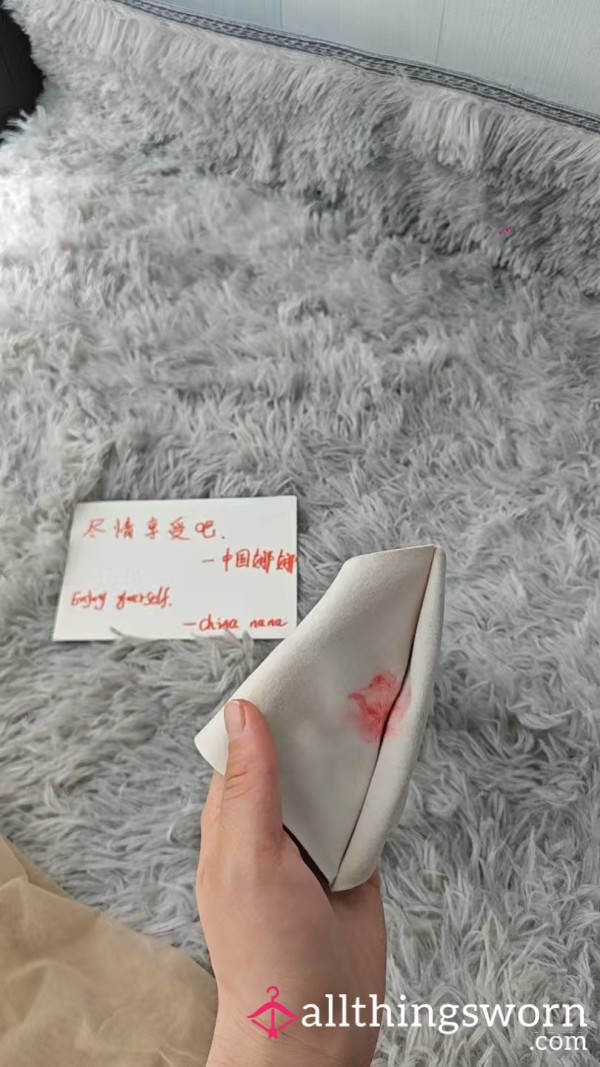 尽情享受吧.
—中国娜娜
Enjoy yourself.
—china nana
allthingsworn
.com